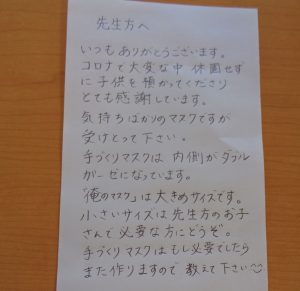 先生方へ
いつもありがとうございます。
コロナで大変な中 休園せず
に子供を預かってくださり
とても感謝しています。
気持ちばかりのマスクですが
受けとって下さい。
手づくりマスクは 内側がダブル
ガーゼになっています。
「俺のマスク」は大きめサイズです。
小さいサイズは先生方のお子
さんで必要な方にどうぞ。
手づくりマスクはもし必要でしたら
また作りますので 教えて下さい☺